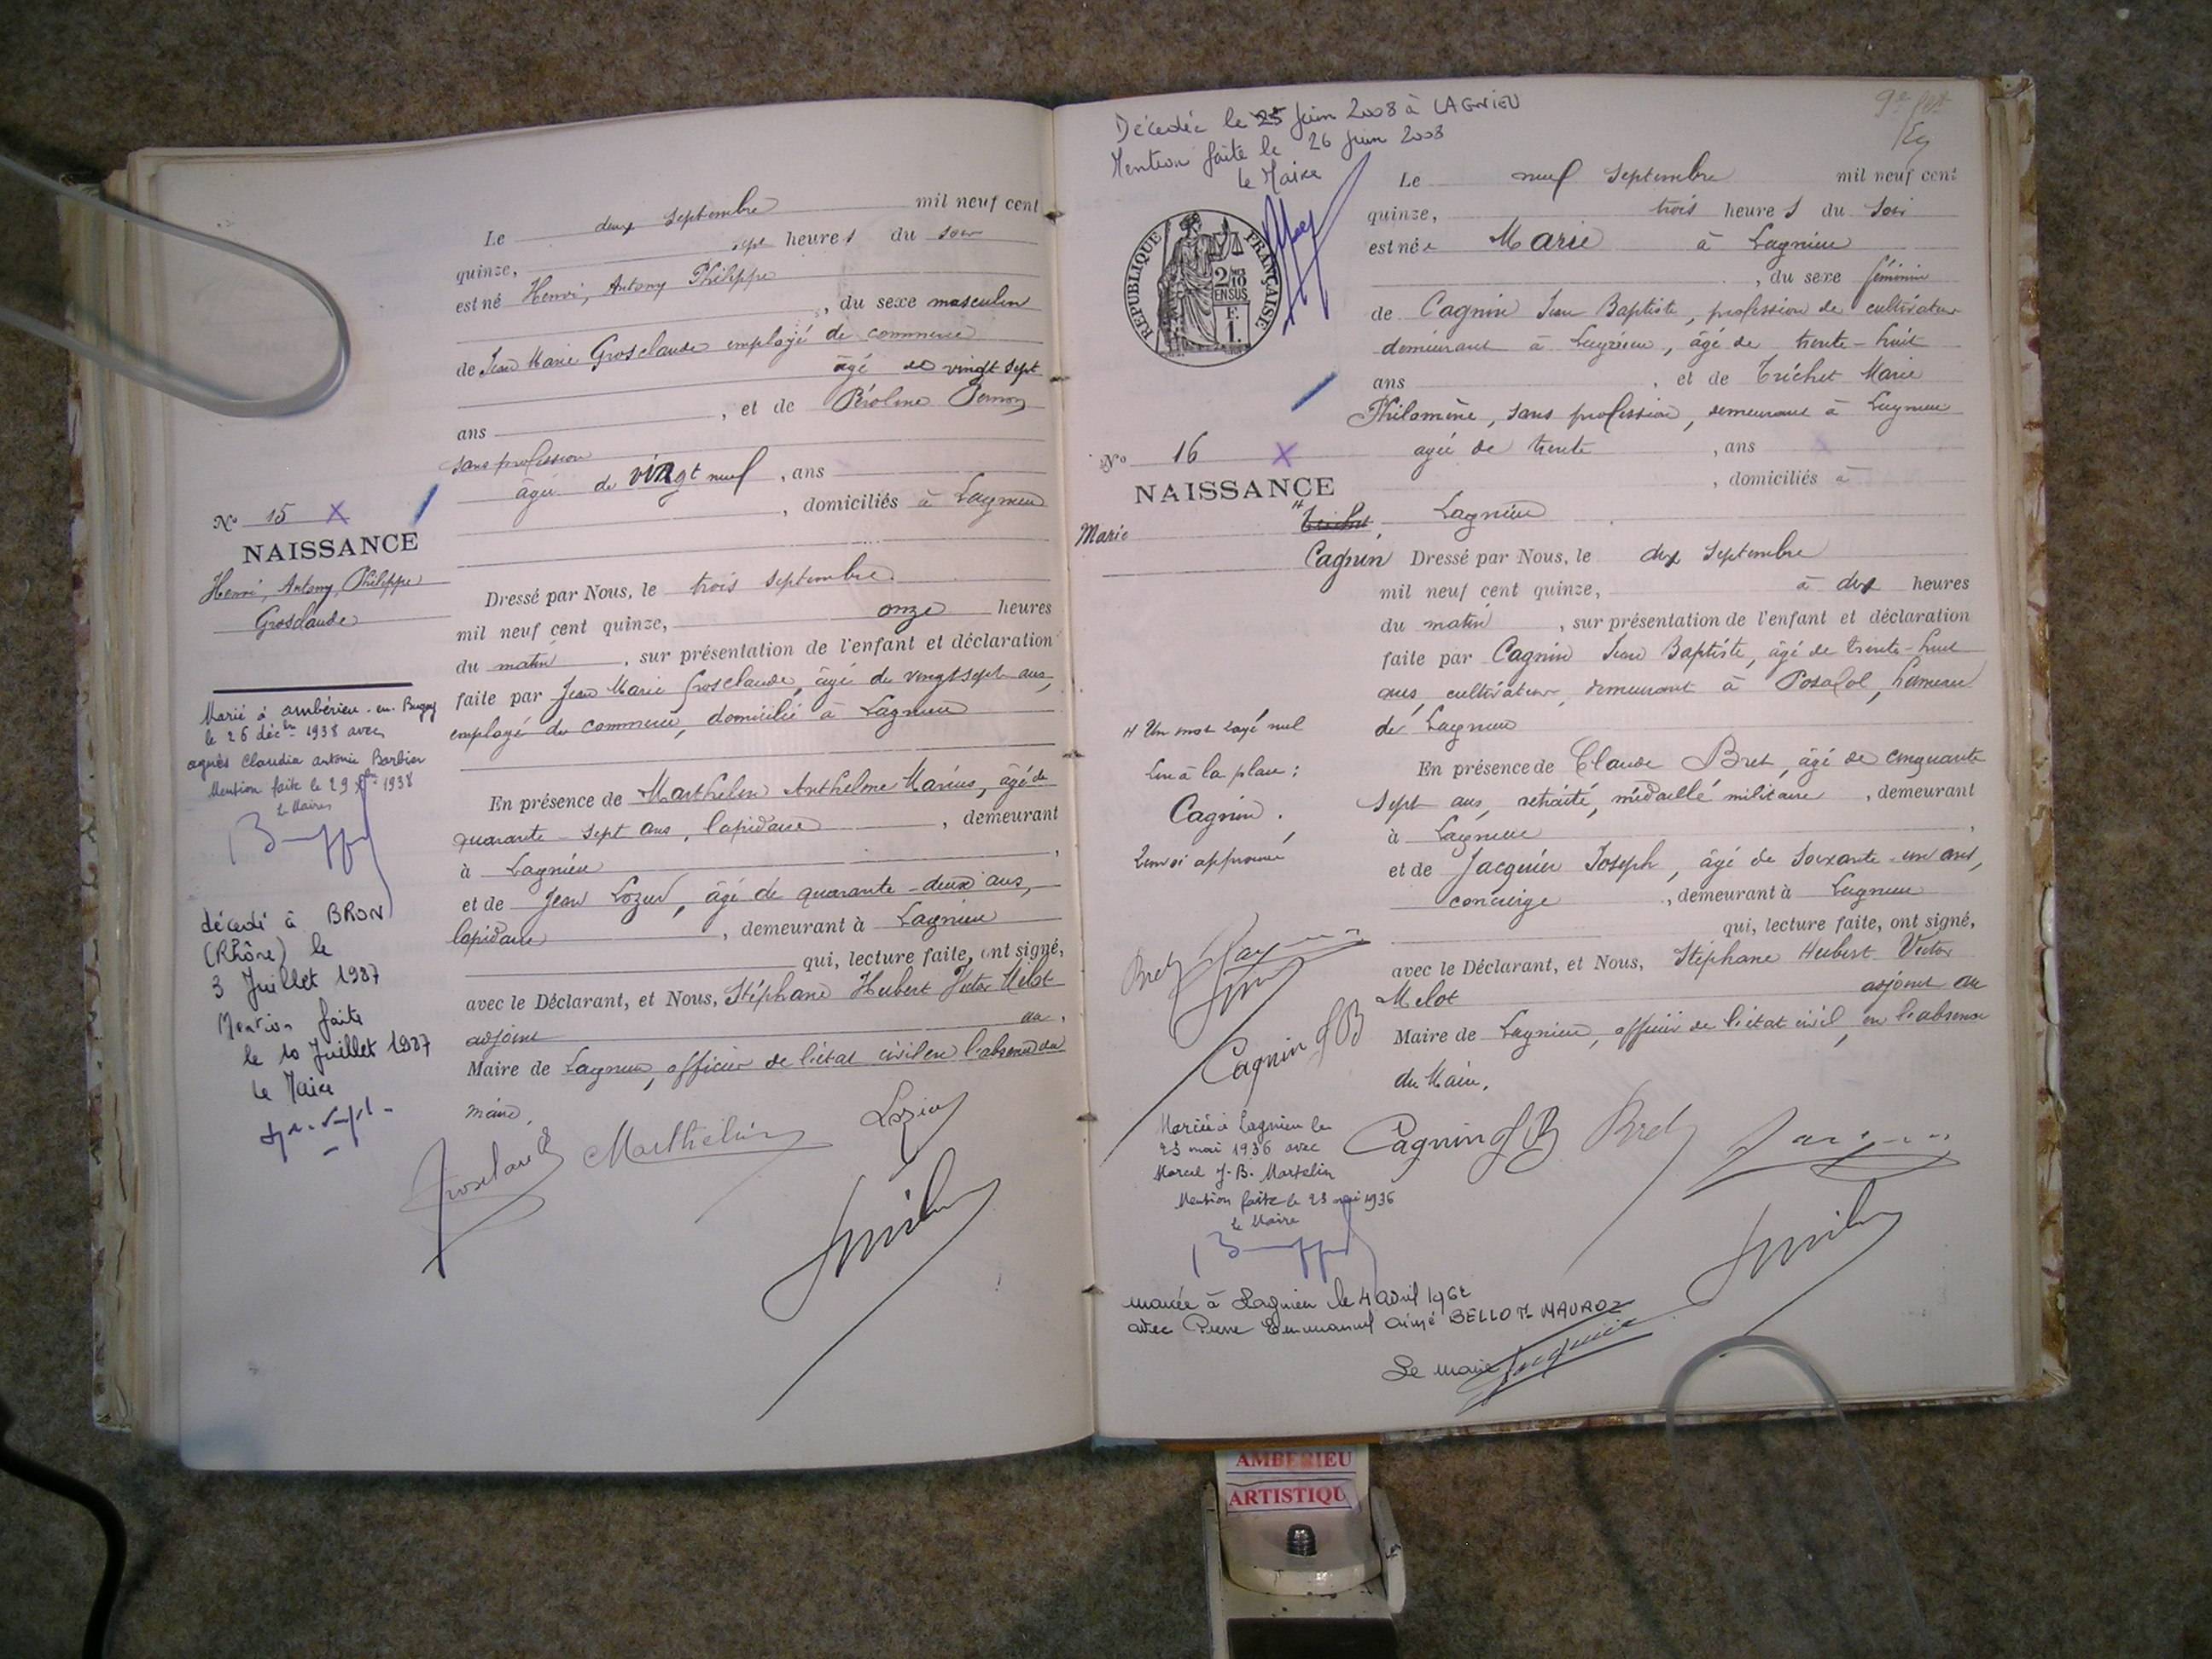 Le deux septembre mil neuf cent
quinze, sept heures du soir
est né Henri, Antony Philippe
, du sexe masculin
de Jean Marie Grosclaude employé de commerce
âgé de vingt sept
ans , et de
sans profession
âgée de vingt neuf , ans
, domiciliés à Lagnieu
No 15 X
NAISSANCE
Henri, Antony, Philippe
Grosclaude
Dressé par Nous, le trois septembre
mil neuf cent quinze, onze heures
du matin , sur présentation de l'enfant et déclaration
faite par Jean Marie Grosclaude, âgé de vingt sept ans,
employé de commerce, domicilié à Lagnieu
En présence de Marthelin Anthelme Marius, âgé de
quarante-sept ans, lapidaire , demeurant
à Lagnieu ,
et de Jean Lozier, âgé de quarante-deux ans,
lapidaire , demeurant à Lagnieu
qui, lecture faite, ont signé,
avec le Déclarant, et Nous, Stéphane Hubert Victor Melot
adjoint au
Maire de Lagnieu, officier de l'état civil en l'absence du
maire.
Marié à Ambérieu-en-Bugey
le 26 décbre 1938 avec
agnès Claudia antonie Barbier
Mention faite le 29 Xbre 1938
le Maire
décédé à BRON
(Rhône) le
3 Juillet 1987
Mention faite
le 10 Juillet 1987
le Maire
Grosclaude Marthelin Lozier
Décédée le 25 Juin 2008 à LAGNIEU
Mention faite le 26 Juin 2008
le Maire
RÉPUBLIQUE FRANÇAISE
2/10
EN SUS
F.
1.
Le neuf septembre mil neuf cent
quinze, trois heures du soir
est née Marie à Lagnieu
, du sexe féminin
de Cagnin Jean Baptiste, profession de cultivateur
demeurant à Lagnieu, âgé de trente-huit
ans , et de Trichet Marie
Philomène, sans profession, demeurant à Lagnieu
agée de trente , ans
, domiciliés à
Lagnieu
No 16 X
NAISSANCE
Marie Trichet
Cagnin
Dressé par Nous, le dix septembre
mil neuf cent quinze, à dix heures
du matin , sur présentation de l'enfant et déclaration
faite par Cagnin Jean Baptiste, âgé de trente-huit
ans, cultivateur, demeurant à Posafol, hameau
de Lagnieu
En présence de Claude Bret, âgé de cinquante
sept ans, retraité, médaillé militaire , demeurant
à Lagnieu
et de Jacquier Joseph, âgé de soixante-un ans,
concierge , demeurant à Lagnieu
qui, lecture faite, ont signé,
avec le Déclarant, et Nous, Stéphane Hubert Victor
Melot adjoint au
Maire de Lagnieu, officier de l'état civil, en l'absence
du Maire.
Un mot rayé nul
Lire à la place :
Cagnin.
Renvoi approuvé
Bret
Cagnin JB
Cagnin JB Bret
Mariée à Lagnieu le
23 mai 1936 avec
Marcel J-B. Martelin
Mention faite le 23 mai 1936
le Maire
mariée à Lagnieu le 4 avril 1962
avec Pierre Emmanuel Aimé BELLOT MAUROZ
Le maire
AMBERIEU
ARTISTIQU